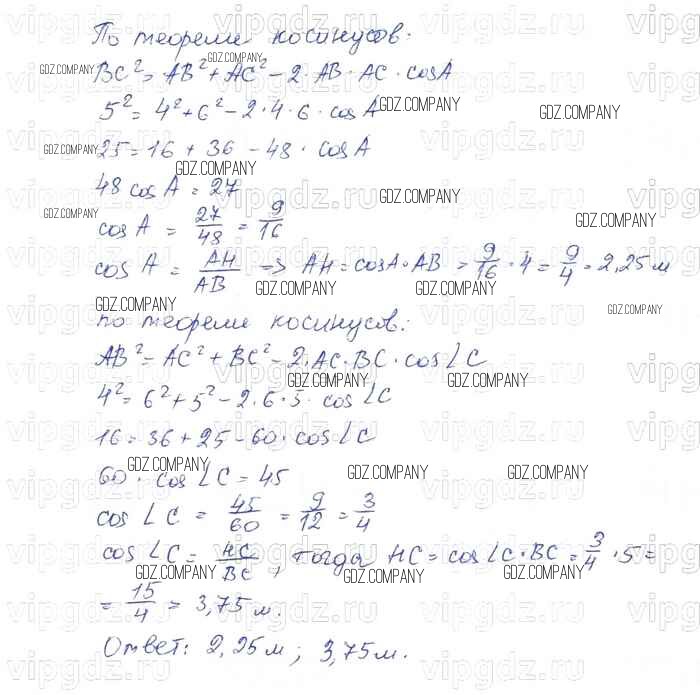 По теореме косинусов:
BC² = AB² + AC² - 2 · AB · AC · cosA
5² = 4² + 6² - 2 · 4 · 6 · cosA
25 = 16 + 36 - 48 · cosA
48 cosA = 27
cosA = 27/48 = 9/16
cosA = AH/AB => AH = cosA · AB = 9/16 · 4 = 9/4 = 2,25м
по теореме косинусов:
AB² = AC² + BC² - 2 · AC · BC · cos∠C
4² = 6² + 5² - 2 · 6 · 5 · cos∠C
16 = 36 + 25 - 60 · cos∠C
60 · cos∠C = 45
cos∠C = 45/60 = 9/12 = 3/4
cos∠C = HC/BC, тогда HC = cos∠C · BC = 3/4 · 5 =
= 15/4 = 3,75 м.
Ответ: 2,25м; 3,75м.
GDZ.COMPANY
vipgdz.ru